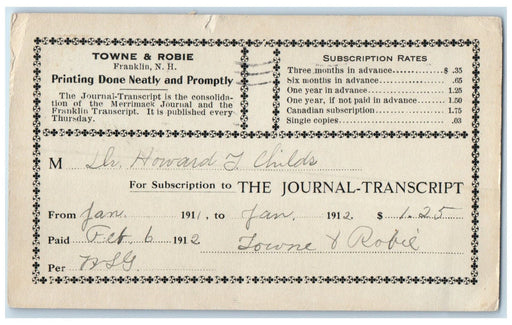 TOWNE & ROBIE
Franklin, N. H.
Printing Done Neatly and Promptly
The Journal-Transcript is the consolida-
tion of the Merrimack Journal and the
Franklin Transcript. It is published every
Thursday.
SUBSCRIPTION RATES
Three months in advance............$ .35
Six months in advance................ .65
One year in advance.................. 1.25
One year, if not paid in advance..... 1.50
Canadian subscription................ 1.75
Single copies........................ .03
M Dr. Howard T. Childs
For Subscription to THE JOURNAL-TRANSCRIPT
From Jan. 1911, to Jan. 1912 $ 1.25
Paid Feb. 6 1912 Towne & Robie
Per